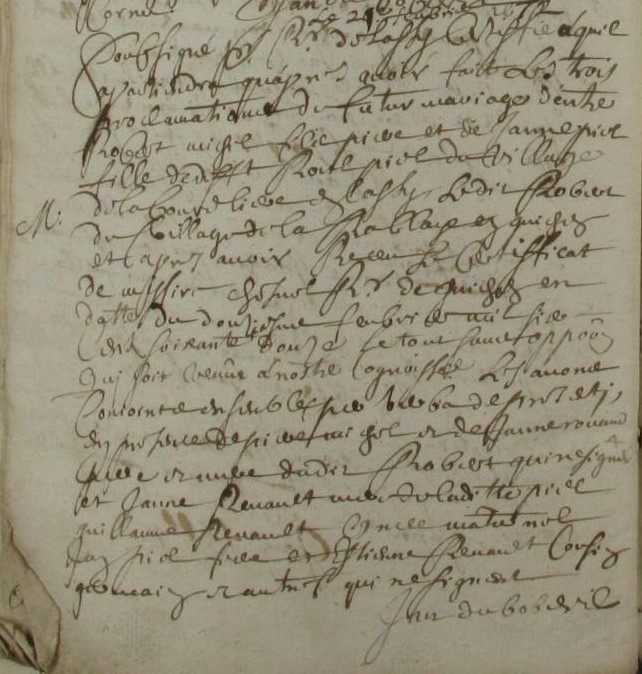 le 21e febvrier
Soubsigné Rr de Lassy certiffie a quil
apartiendra qu'apres avoir faict les trois
proclamations du futur mariage d'entre
Robert michel fils pierre et de Janne
fille de defft piel du village
de la en Lassy Ledit Robert
M: du village de la en guichen
et apres avoir Receu Le Certifficat
de missire Rr de guichen en
datte du douziesme febvrier mil six
cent soixante douze Le tout sans oppon
quj soit venue a nostre cognoissce Les avons
Conioints ensemble par verba de presentj,
en presence de pierre michel et de Janne rouaud
pere et mere dudit Robert qui ne signent
et Janne Renault mere de laditte piel
guillaume Renault Oncle maternel
Jan piel frere et Estienne Renault Cousin
germain et autres qui ne signent